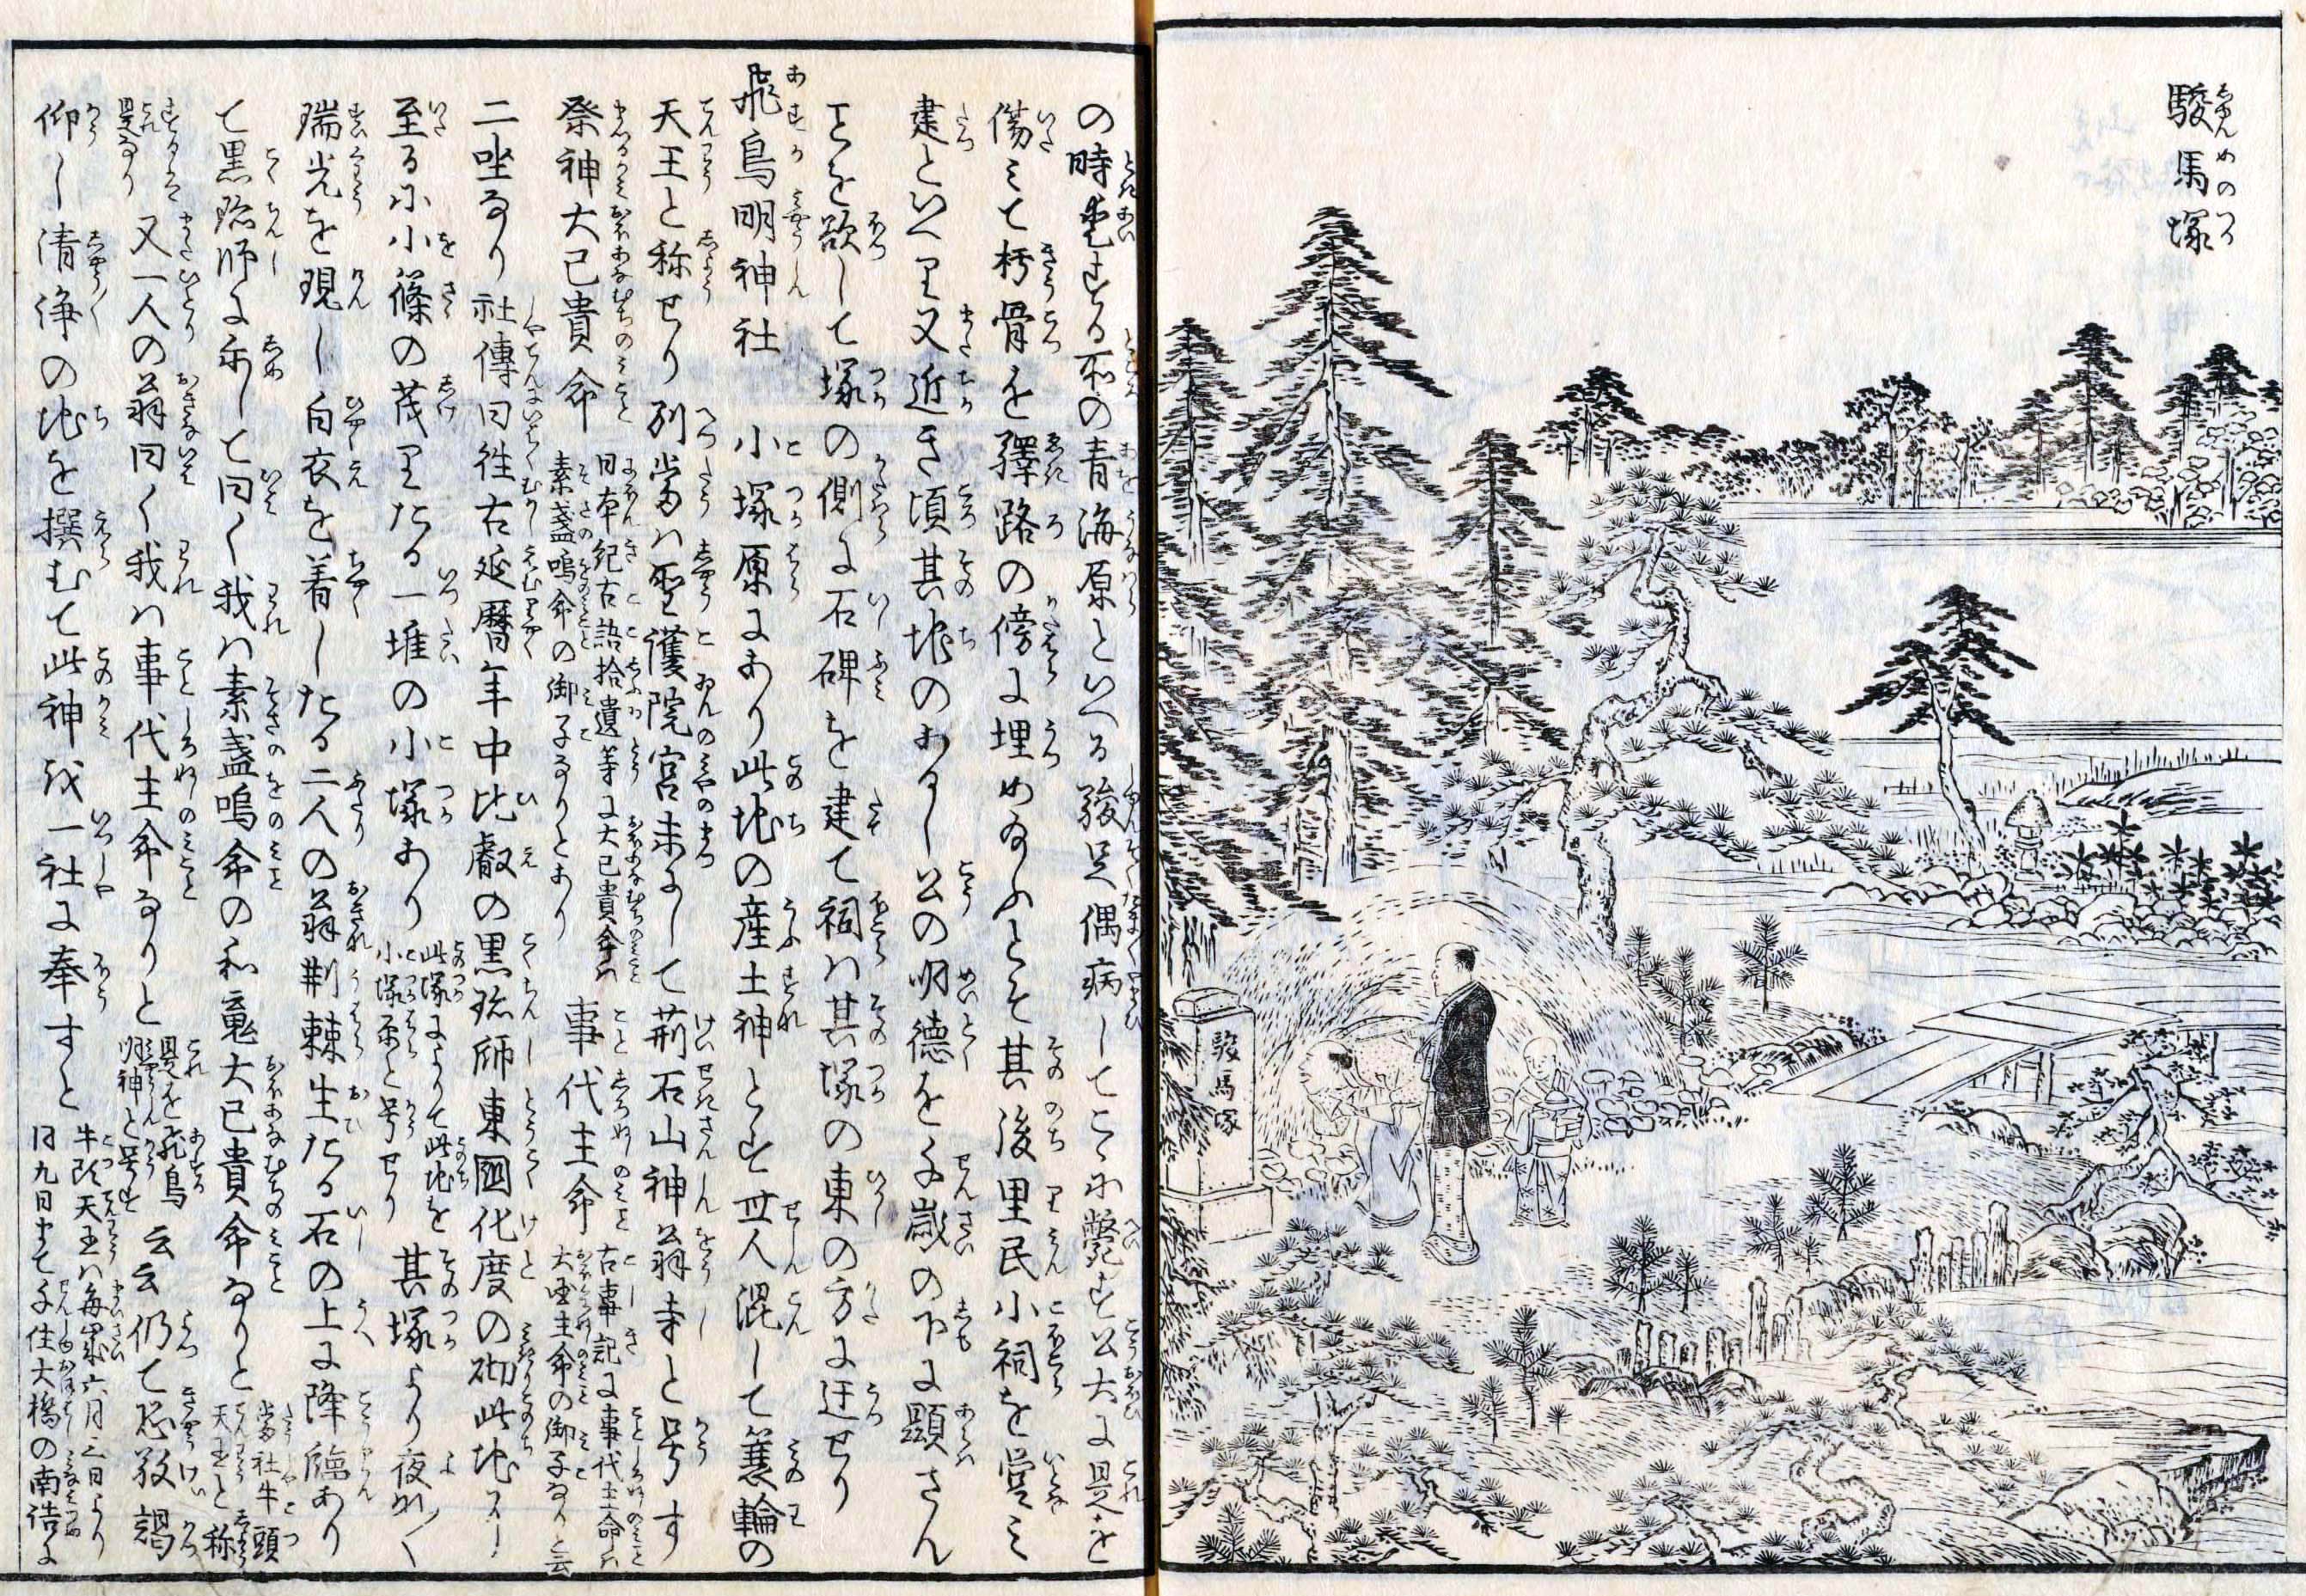 駿馬塚
駿馬塚
の時愛する所の青海原といへる駿足偶病してこゝに斃す公大に是を
傷みて朽骨を驛路の傍に埋め給ふとそ其後里民小祠を営み
建といへり又近き頃其地のあるし公の明徳を千歳の下に顕さん
ことを欲して塚の側に石碑を建て祠は其塚の東の方に迂せり
飛鳥明神社 小塚原にあり此地の産土神とす世人混して簑輪の
天王と称せり別當は聖護院宮末にして荊石山神翁寺と号す
祭神大己貴命 日本紀古語拾遺等に大己貴命は
素盞嗚命の御子なりとあり 事代主命 古事記に事代主命は
大国主命の御子なりと云
二坐なり社傳曰徃古延暦年中比叡の黒珍師東國化度の砌此地に
至るに小篠の茂りたる一堆の小塚あり 此塚によりて此地を
小塚原と号せり 其塚より夜々
瑞光を現し白衣を着したる二人の翁荊棘生たる石の上に降臨あり
て黒珍師に示して曰く我は素盞嗚命の和魂大己貴命なりと 當社牛頭
天王と称
するは
是なり 又一人の翁曰く我は事代主命なりと 是を飛鳥
明神と号す 云云仍て恐敬謁
仰し清浄の地を撰むて此神を一社に奉すと 牛頭天王は毎歳六月三日より
同九日まて千住大橋の南詰に